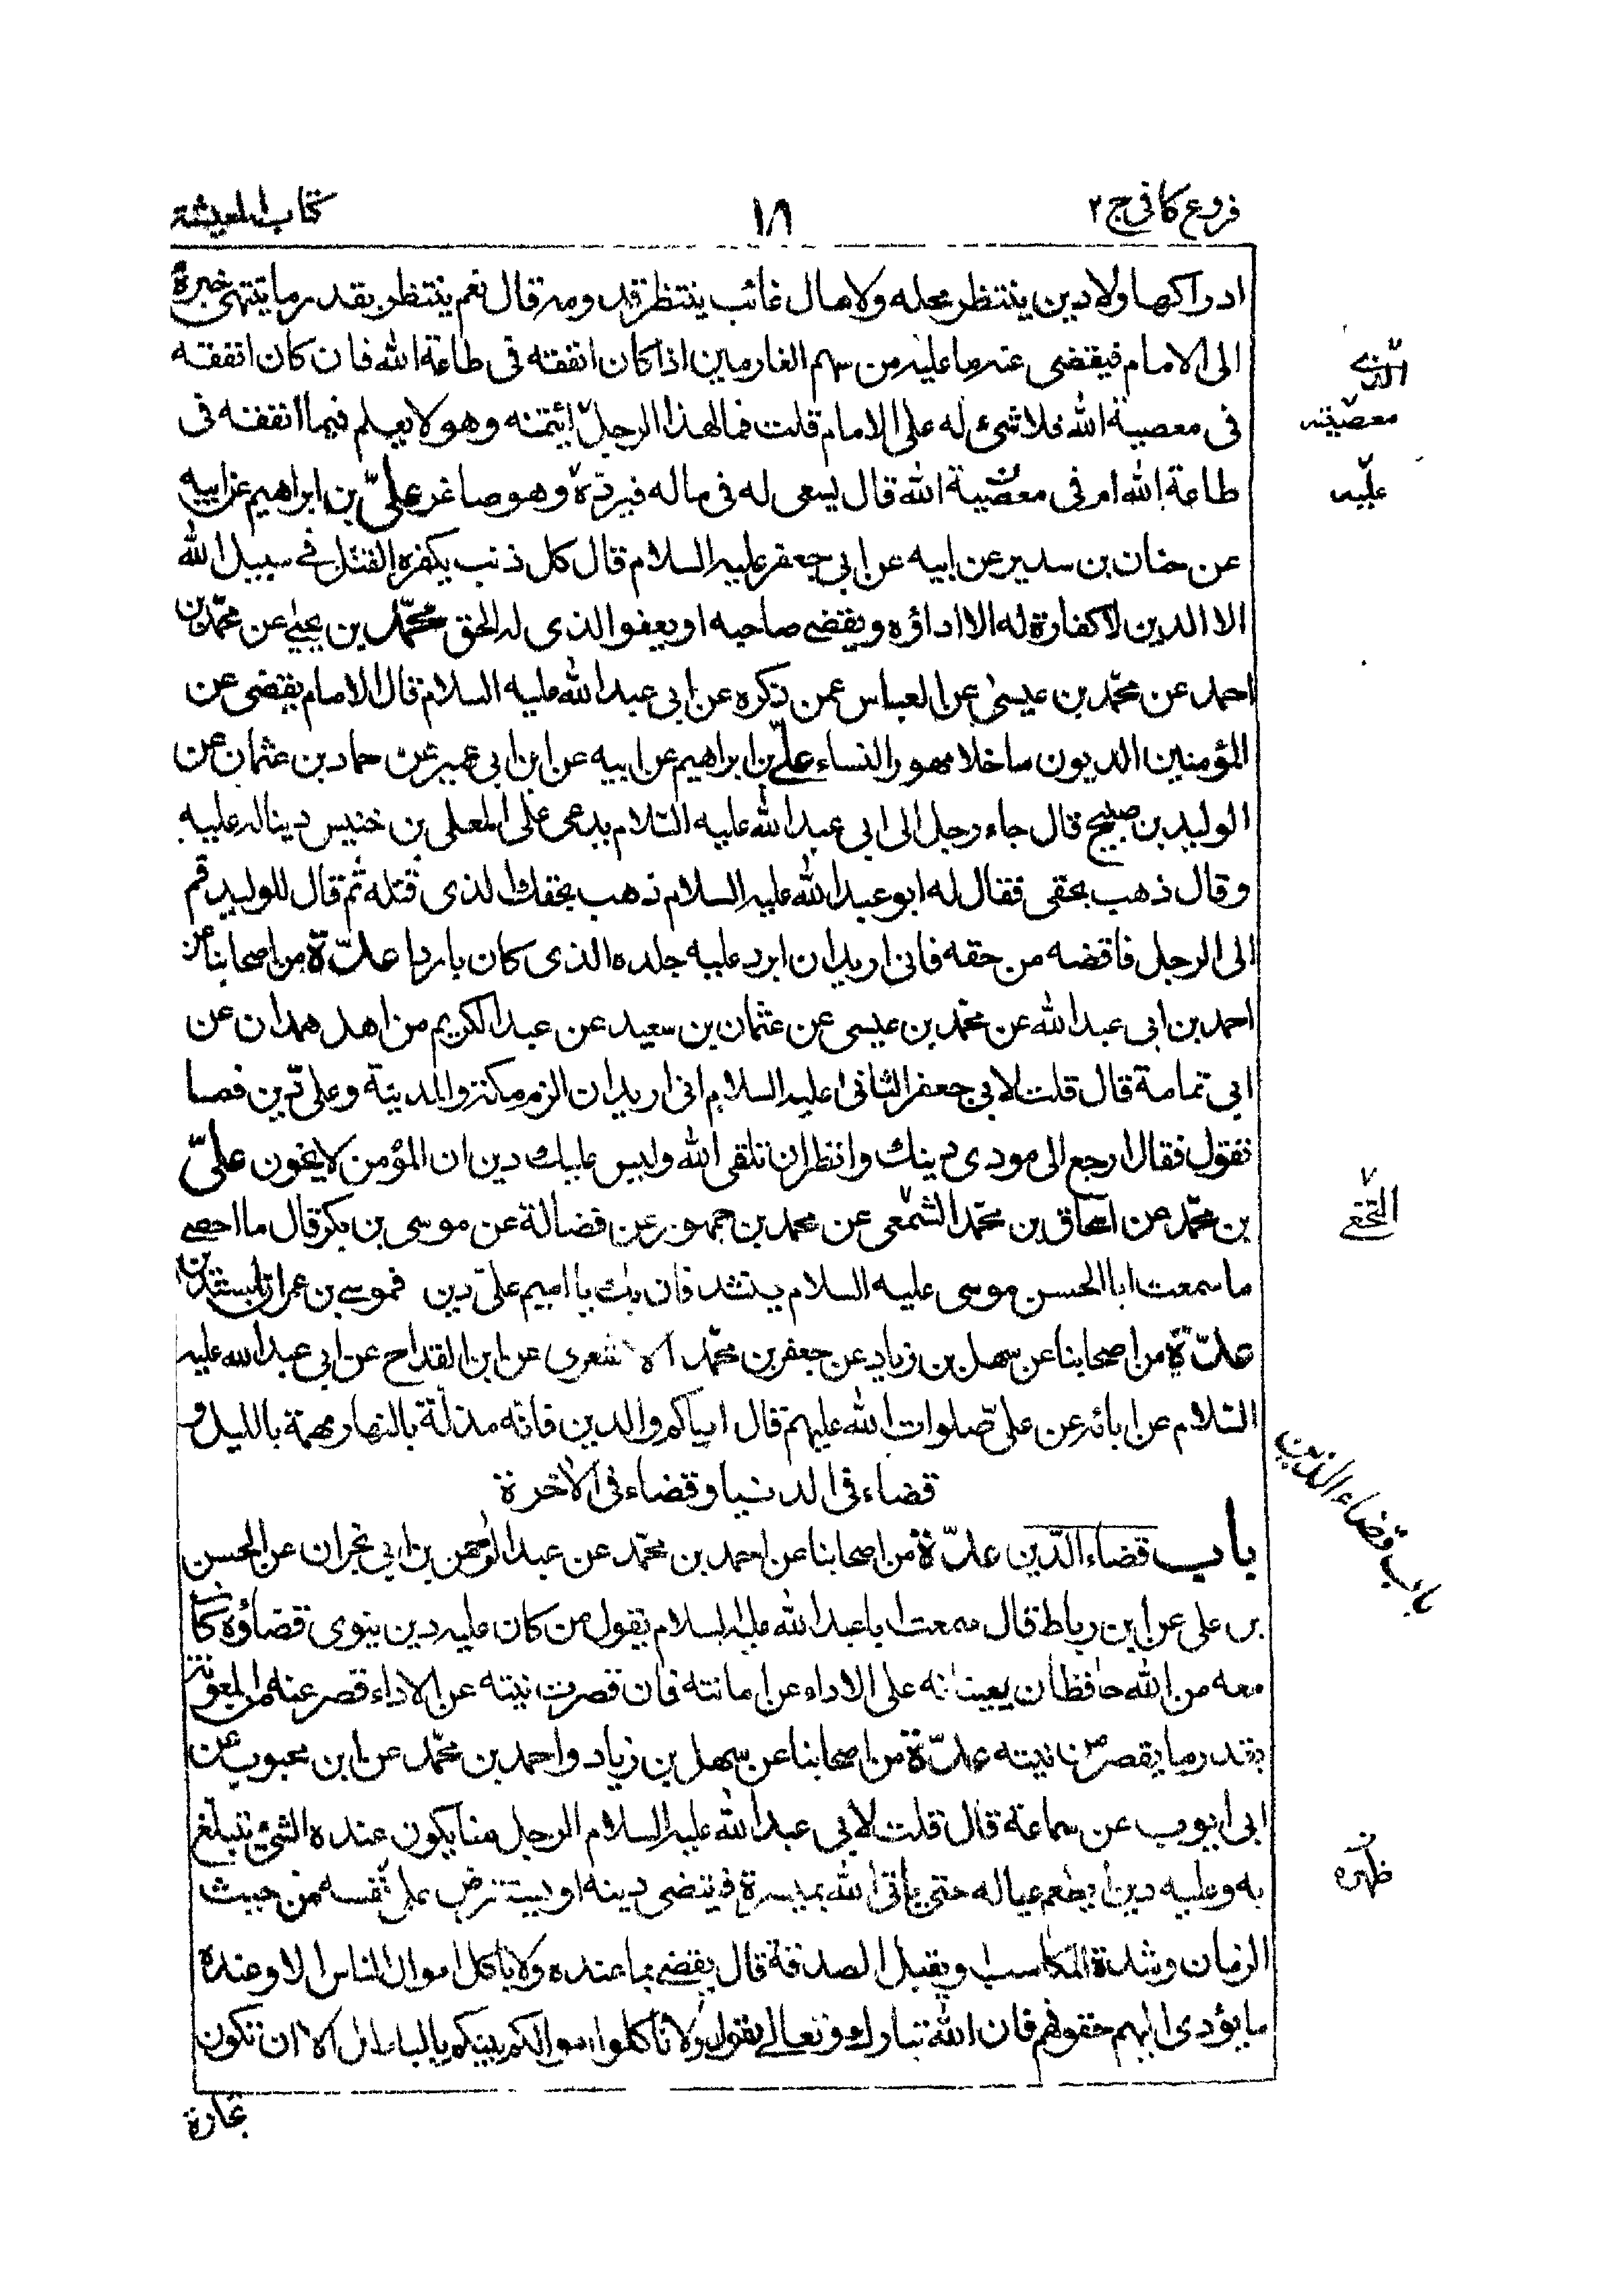 فروع كافى ج ٢
١٨
كتاب المعيشة
ادراكها ولا دين ينتظر محله ولا مال غائب ينتظر قدومه قال نعم ينتظر بقدر ما ينتهى خبره
الى الامام فيقضى عنه ما عليه من سهم الغارمين اذا كان انفقه فى طاعة الله فان كان انفقه
فى معصية الله فلا شىء له على الامام قلت فما لهذا الرجل ائتمنه وهو لا يعلم فيما انفقه فى
طاعة الله ام فى معصية الله قال يسعى له فى ماله فيردّه وهو صاغر علىّ بن ابراهيم عن ابيه
عن حنان بن سدير عن ابيه عن ابى جعفر عليه السلام قال كل ذنب يكفره القتل فى سبيل الله
الا الدين لا كفارة له الا اداؤه ويقضى صاحبه او يعفو الذى له الحق محمّد بن يحيى عن محمّد بن
احمد عن محمّد بن عيسى عن العباس عمن ذكره عن ابى عبد الله عليه السلام قال الامام يقضى عن
المؤمنين الديون ما خلا مهور النساء علىّ بن ابراهيم عن ابيه عن ابن ابى عمير عن حماد بن عثمان عن
الوليد بن صبيح قال جاء رجل الى ابى عبد الله عليه السّلام يدعى على المعلى بن خنيس دينا له عليه
وقال ذهب بحقى فقال له ابو عبد الله عليه السلام ذهب بحقك الذى قتله ثم قال للوليد قم
الى الرجل فاقضه من حقه فانى اريد ان ابرد عليه جلده الذى كان باردا عدّة من اصحابنا عن
احمد بن ابى عبد الله عن محمّد بن عيسى عن عثمان بن سعيد عن عبد الكريم من اهل همدان عن
ابى تمامة قال قلت لابى جعفر الثانى عليه السلام انى اريد ان الزم مكة والمدينة وعلى دين فما
تقول فقال ارجع الى مودى دينك وانظر ان تلقى الله وليس عليك دين ان المؤمن لا يخون علىّ
بن محمّد عن اسحاق بن محمّد الشمعى عن محمد بن جمهور عن فضالة عن موسى بن بكر قال ما احصى
ما سمعت ابا الحسن موسى عليه السلام ينشد فان يك يا اميم علىّ دين فموسى بن عمران يستدين
عدّة من اصحابنا عن سهل بن زياد عن جعفر بن محمّد الاشعرى عن ابن القداح عن ابى عبد الله عليه
السّلام عن ابائه عن علىّ صلوات الله عليهم قال اياكم والدين فانه مذلّة بالنهار مهمة بالليل و
قضاء فى الدنيا وقضاء فى الآخرة
باب قضاء الدّين عدّة من اصحابنا عن احمد بن محمّد عن عبد الرحمن بن ابى نجران عن الحسن
بن على عن ابن رباط قال سمعت ابا عبد الله عليه السلام يقول من كان عليه دين ينوى قضاؤه كان
معه من الله حافظان يعينانه على الاداء عن امانته فان قصرت نيته عن الاداء قصر عنه من المعونة
بقدر ما يقصر من نيته عدّة من اصحابنا عن سهل بن زياد واحمد بن محمّد عن ابن محبوب عن
ابى ايوب عن سماعة قال قلت لابى عبد الله عليه السلام الرجل منا يكون عنده الشىء يتبلغ
به وعليه دين ايطعم عياله حتى ياتى الله بميسرة فيقضى دينه او يستقرض على نفسه من خبث
الزمان وشدة المكاسب او يقبل الصدقة قال يقضى بما عنده ولا ياكل اموال الناس الا وعنده
ما يؤدى اليهم حقوقهم فان الله تبارك وتعالى يقول ولا تأكلوا اموالكم بينكم بالباطل الا ان تكون
تجارة
الّذى
معصيته
عليه
النخعى
باب قضاء الدّين
ظهره